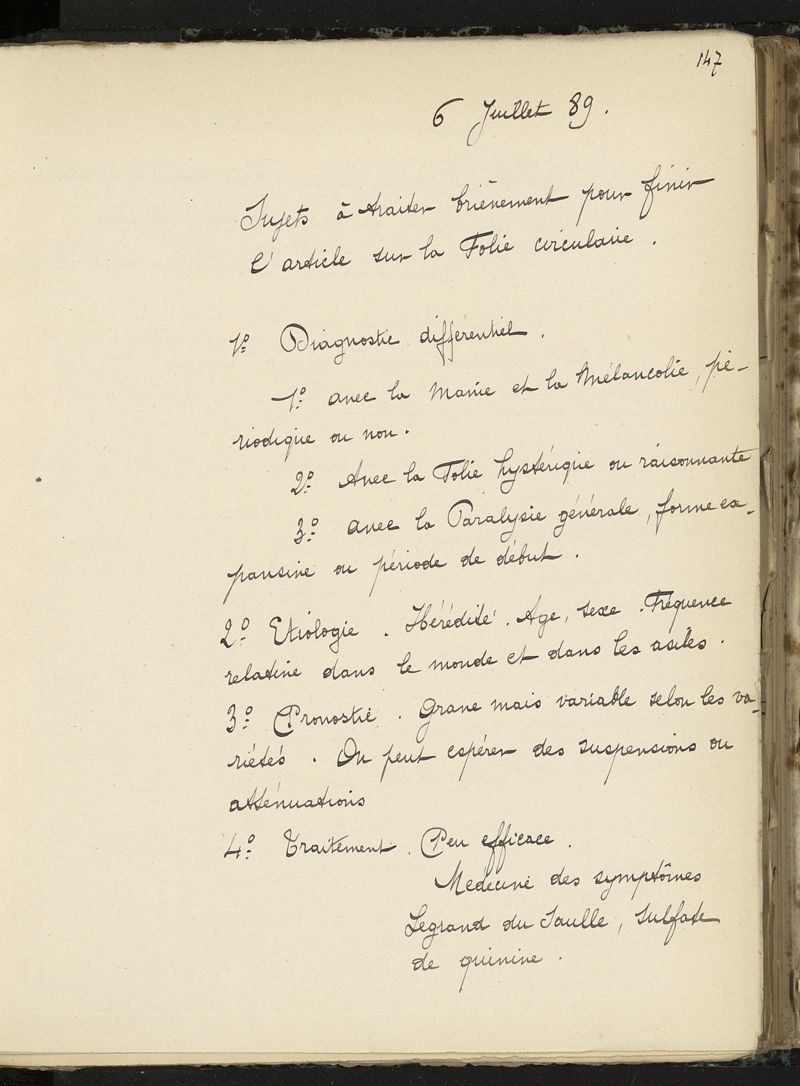 147
6 Juillet 89.
Sujets à traiter brièvement pour finir
l'article sur la Folie circulaire.
1º Diagnostic différentiel.
1º avec la Manie et la Mélancolie, pé-
riodique ou non.
2º Avec la Folie hystérique ou raisonnante
3º avec la Paralysie générale, forme ex-
pansive ou période de début.
2º Etiologie. Hérédité. Age, sexe. Fréquence
relative dans le monde et dans les asiles.
3º Pronostic. Grave mais variable selon les va-
riétés. On peut espérer des suspensions ou
atténuations
4º Traitement. Peu efficace.
Médecine des symptômes
Legrand du Saulle, sulfate
de quinine.